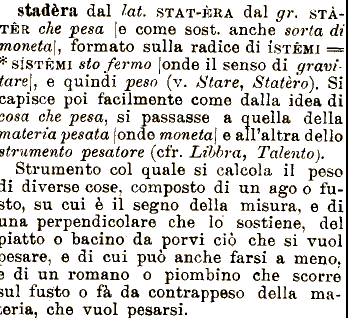 stadèra dal lat. STAT-ÈRA dal gr. STÀ-
TÊR che pesa [e come sost. anche sorta di
moneta], formato sulla radice di ÌSTÊMI =
* SÍSTÊMI sto fermo [onde il senso di gravi-
tare], e quindi peso (v. Stare, Statèro). Si
capisce poi facilmente come dalla idea di
cosa che pesa, si passasse a quella della
materia pesata [onde moneta] e all'altra dello
strumento pesatore (cfr. Libbra, Talento).
Strumento col quale si calcola il peso
di diverse cose, composto di un ago o fu-
sto, su cui è il segno della misura, e di
una perpendicolare che lo sostiene, del
piatto o bacino da porvi ciò che si vuol
pesare, e di cui può anche farsi a meno,
e di un romano o piombino che scorre
sul fusto o fà da contrappeso della ma-
teria, che vuol pesarsi.